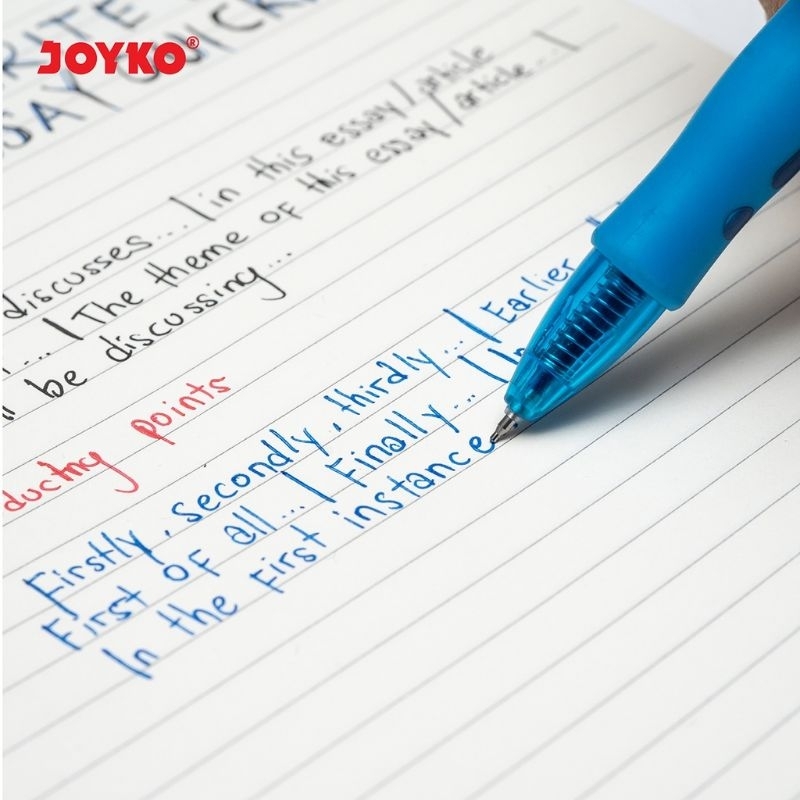 JOYKO®
RITE
SAY QUICK
discusses... | in this essay / article
... | The theme of this essay / article... |
be discussing...
ducing points
Firstly, secondly, thirdly... | Earlier
First of all... | Finally... |
In the first instance